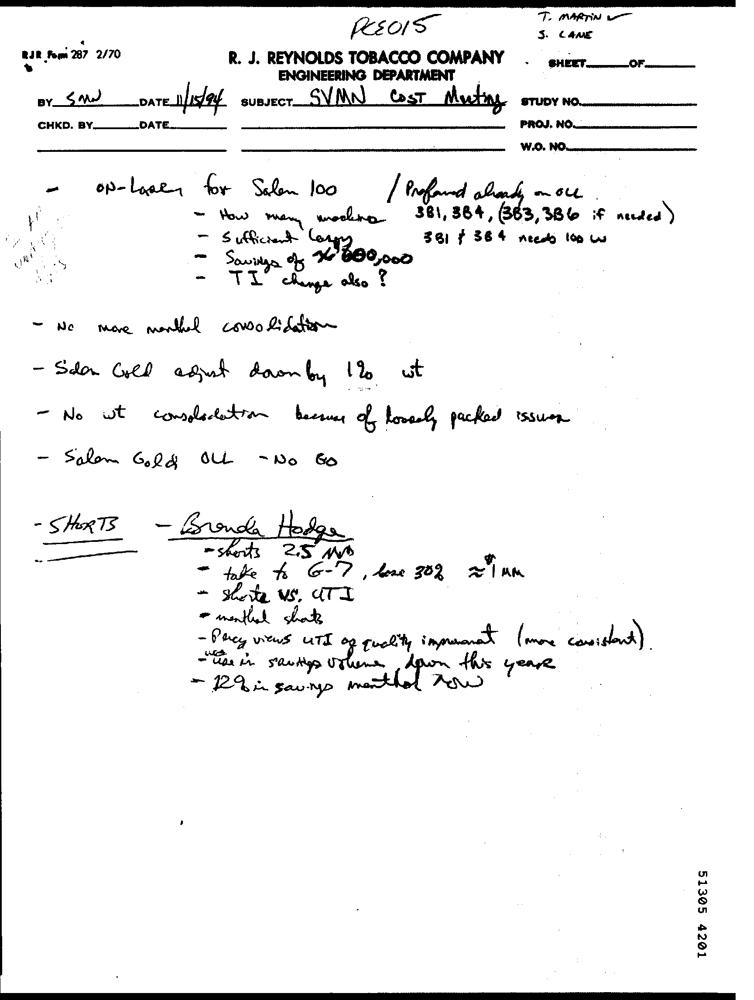 PCE015
T. MARTIN ✓
S. LANE
RJR Form 287 2/70
R. J. REYNOLDS TOBACCO COMPANY
ENGINEERING DEPARTMENT
SHEET OF
BY SMW DATE 11/15/94 SUBJECT SVMN COST Meeting STUDY NO.
CHKD. BY DATE PROJ. NO.
W.O. NO.
- ON-Laser for Salem 100 / already on OLL
- How many 381, 384, (383, 386 if needed)
- Sufficient 381 & 384 needs 100 W
- Savings of 600,000
- TI change also ?
- No more menthol consolidation
- Salem Gold adjust down by 1% wt
- No wt consolodation because of loosely packed issues
- Salem Gold OLL - No Go
- SHORTS - Brenda Hodge
- shorts 2.5
- take to G-7, lose 30% ≈ $1 MM
- Shorts VS. UTI
- menthol shorts
- Percy views UTI as quality (more consistant).
- use in savings volume, down this year
- 12% in savings menthol now
51305 4201